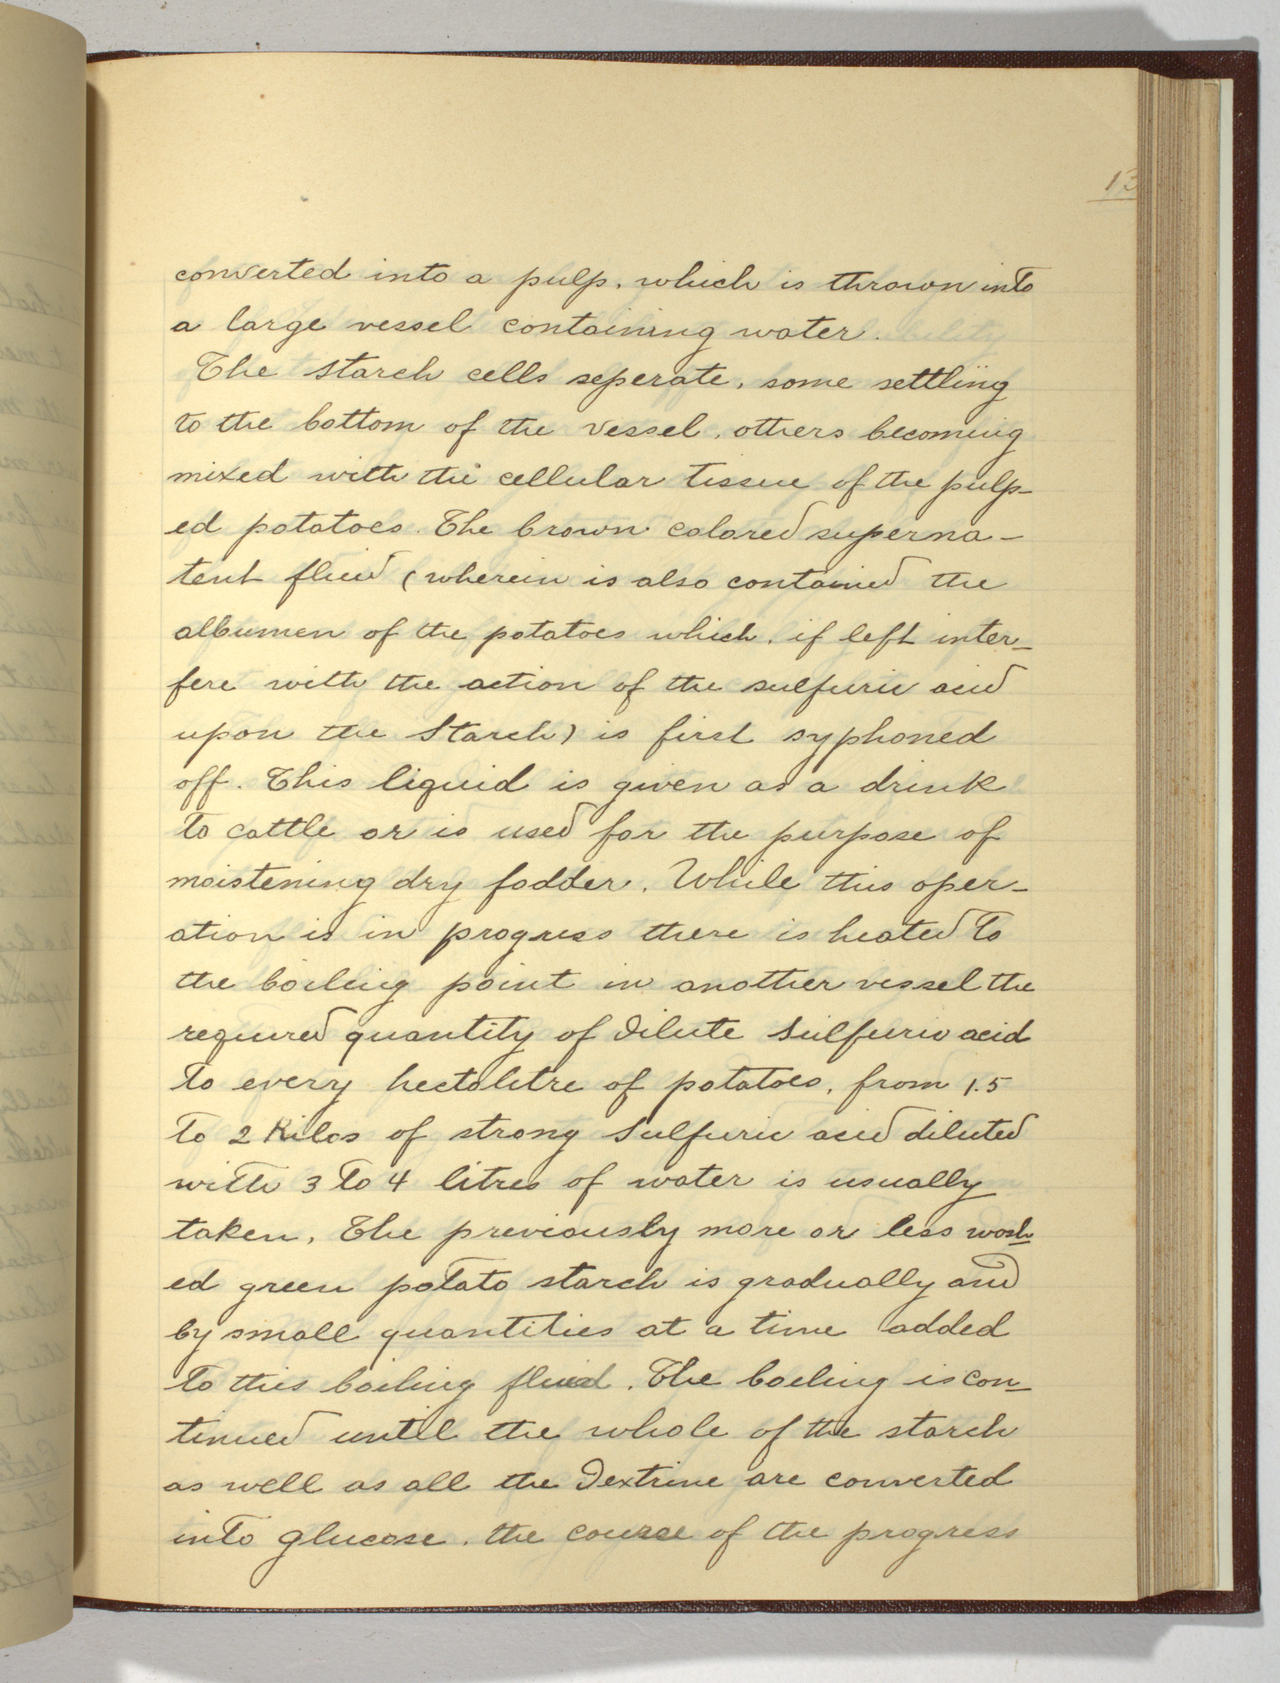 13
converted into a pulp, which is thrown into
a large vessel containing water.
The starch cells seperate, some settling
to the bottom of the vessel, others becoming
mixed with the cellular tissue of the pulp-
ed potatoes. The brown colored superna-
tent fluid (wherein is also contained the
albumen of the potatoes which, if left inter-
fere with the action of the sulfuric acid
upon the Starch) is first syphoned
off. This liquid is given as a drink
to cattle or is used for the purpose of
moistening dry fodder. While this oper-
ation is in progress there is heated to
the boiling point in another vessel the
required quantity of dilute Sulfuric acid
to every hectolitre of potatoes, from 1.5
to 2 Kilos of strong Sulfuric acid diluted
with 3 to 4 litres of water is usually
taken. The previously more or less wash-
ed green potato starch is gradually and
by small quantities at a time added
to this boiling fluid. The boiling is con-
tinued until the whole of the starch
as well as all the Dextrine are converted
into glucose, the course of the progress